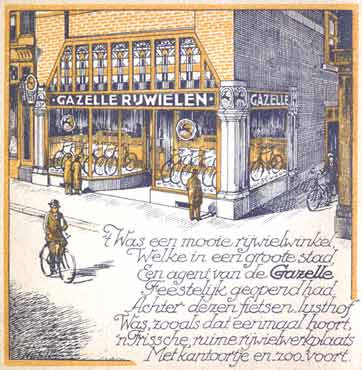 ·GAZELLE RIJWIELEN·
GAZELLE
't Was een mooie rijwielwinkel,
Welke in een groote stad,
Een agent van de Gazelle
Feestelijk geopend had.
Achter dezen fietsen-lusthof
Was, zooals dat eenmaal hoort,
'n Frissche, ruime rijwielwerkplaats
Met kantoortje en zoo voort.